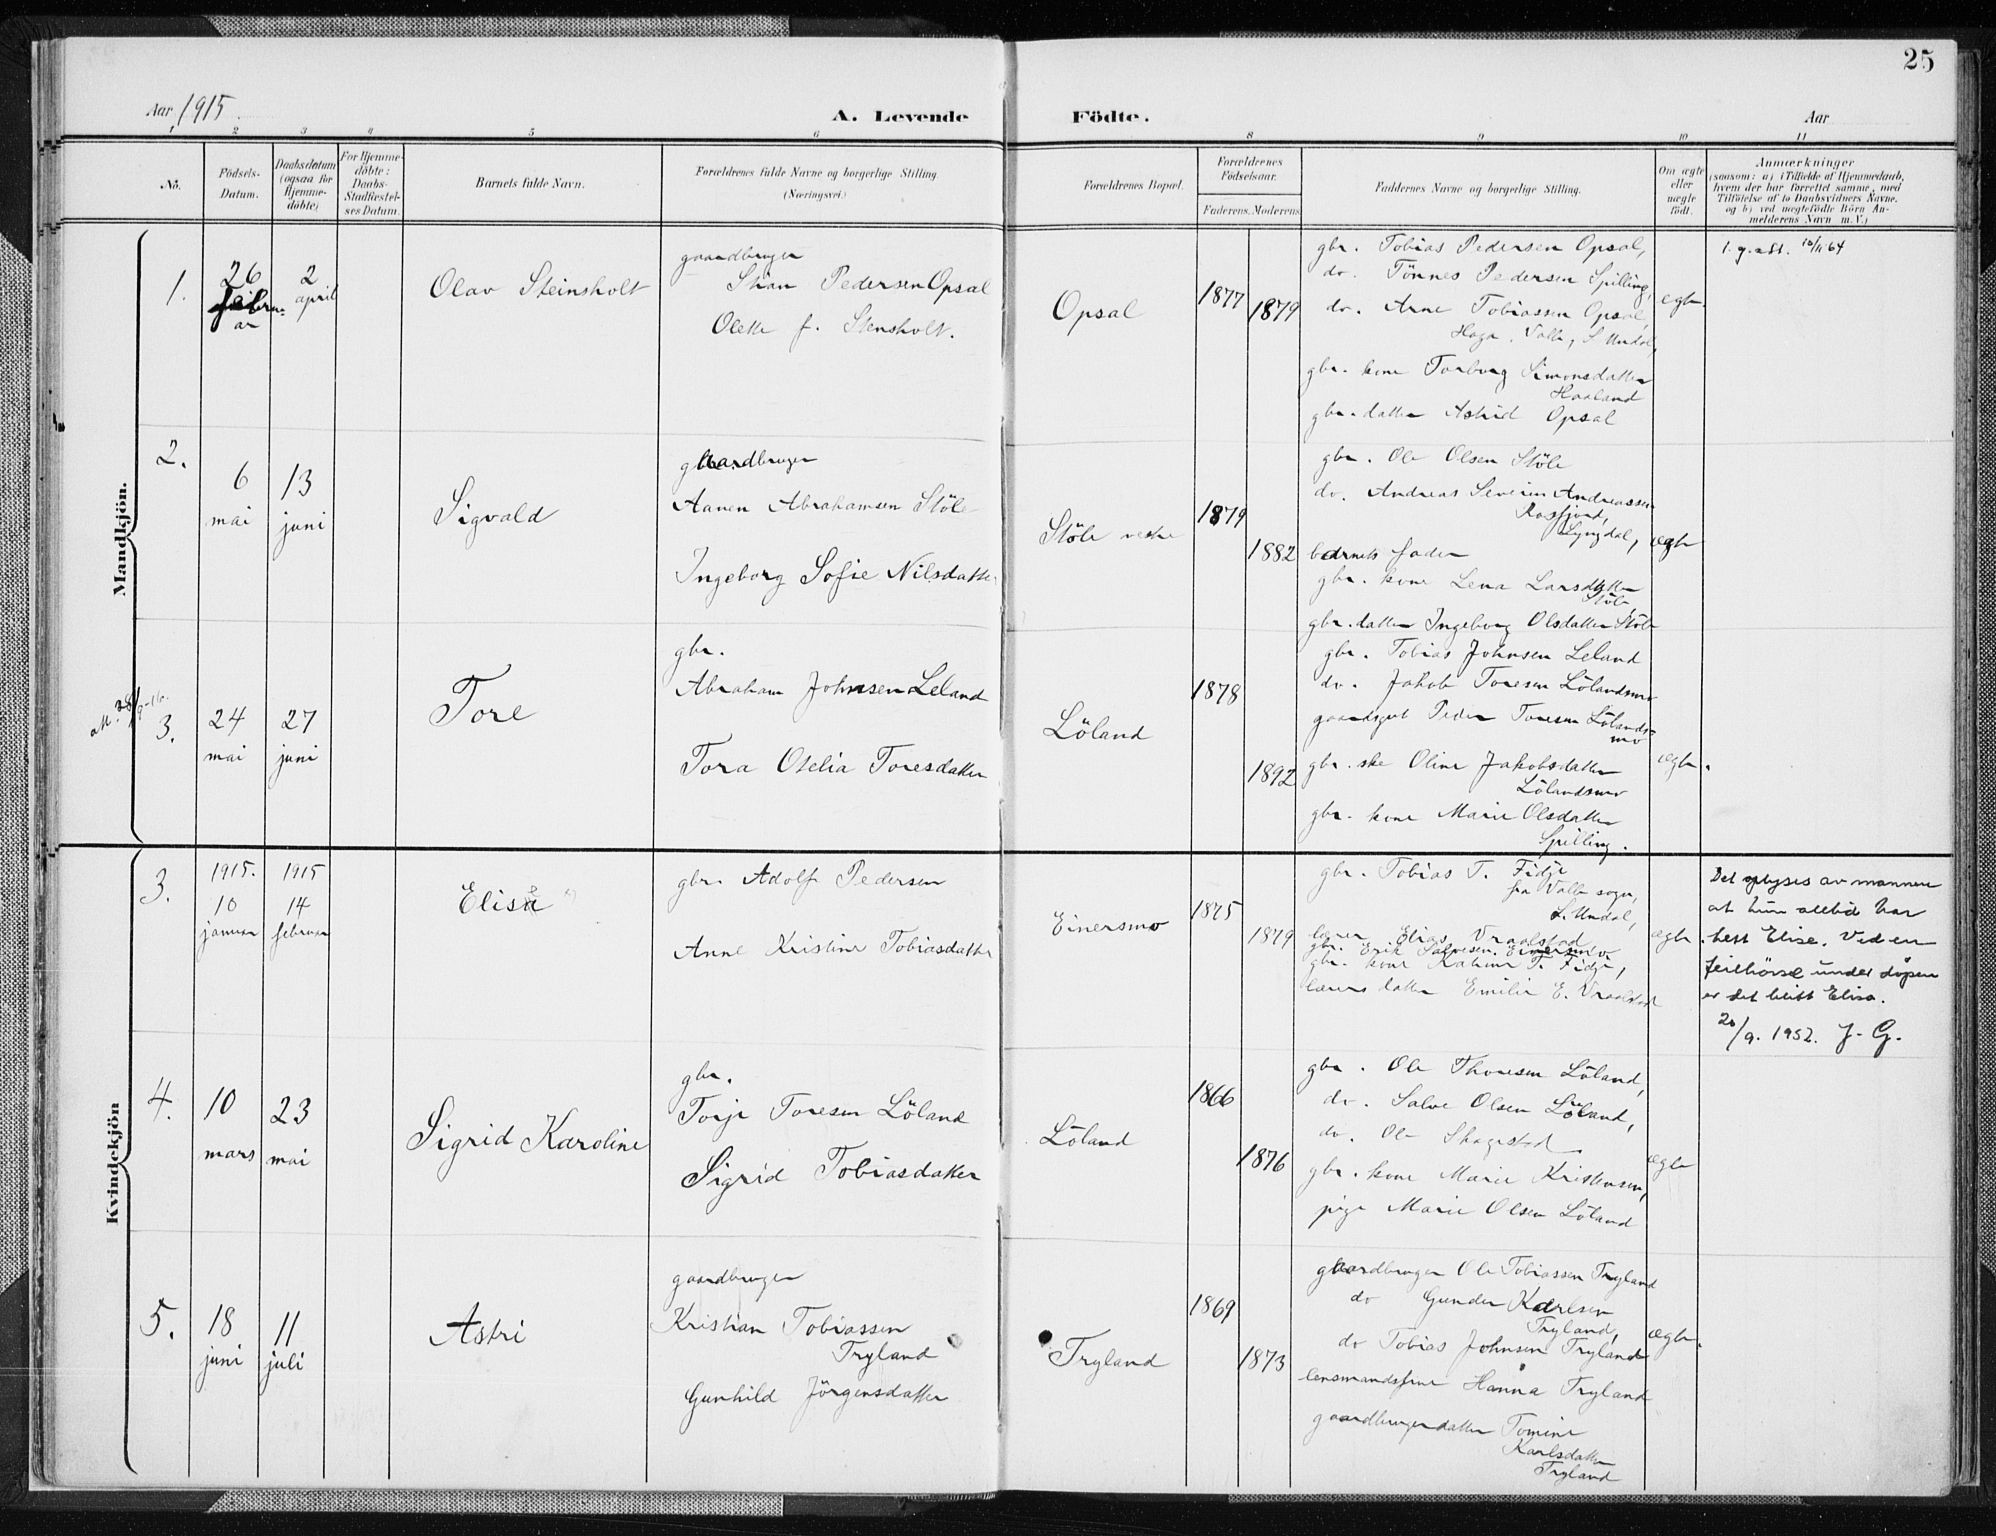 25
Aar 1915
A. Levende Födte.
Aar
1 2 3 4 5 6 8 9 10 11
No.
Födsels-
Datum.
Daabsdatum
(ogsaa for
Hjemme-
döbte)
For Hjemme-
döbte:
Daabs-
Stadfæstel-
ses Datum.
Barnets fulde Navn.
Forældrenes fulde Navne og borgerlige Stilling.
(Næringsvei.)
Forældrenes Bopæl.
Forældrenes
Födselsaar.
Faderens. Moderens.
Faddernes Navne og borgerlige Stilling.
Om ægte
eller
uægte
födt.
Anmærkninger
(saasom: a) i Tilfælde af Hjemmedaab,
hvem der har forrettet samme, med
Tilföielse af to Daabsvidners Navne.
og b) ved uegtefödte Börn An-
melderens Navn m. V.)
Mandkjön.
1.
26
februar
2
april
Olav Steinsholt
gaardbruger
Stian Pedersen Opsal
Olette f. Stensholt.
Opsal
1877
1879
gbr. Tobias Pedersen Opsal,
do. Tönnes Pedersen Spilling,
do. Arne Tobiassen Opsal,
Haga, Valle, S. Undal,
gbr. kone Torborg Simonsdatter
Haaland
gbr. datter Astrid Opsal
egte
1. g. att. 10/11 64
2.
6
mai
13
juni
Sigvald
gaardbruger
Aanen Abrahamsen Stöle
Ingeborg Sofie Nilsdatter
Stöle vestre
1879
1882
gbr. Ole Olsen Stöle
do. Andreas Severin Andreassen
Rosfjord,
Lyngdal,
barnets fader
gbr. kone Lena Larsdatter
Stöle
gbr. datter Ingeborg Olsdatter Stöle
ægte
3.
24
mai
27
juni
Tore
gbr.
Abraham Johnsen Leland
Tora Otelia Toresdatter
Löland
1878
1892
gbr. Tobias Johnsen Leland
do. Jakob Toresen Lölandsmo
gaardgut Peder Toresen Lölands-
mo
gbr. ske Oline Jakobsdatter
Lölandsmo
gbr. kone Marie Olsdatter
Spilling.
ægte.
Kvindekjön
3.
1915.
10
januar
1915
14
februar
Elisa
gbr. Adolf Pedersen
Anne Kristine Tobiasdatter
Einersmo
1875
1879
gbr. Tobias T. Fidje
fra Valle sogn,
S. Undal,
lærer Elias Vraalstad
gbr. Erik Salvesen Einersmo.
gbr. kone Katrine T. Fidje,
lærers datter Emilie E. Vraalstad
ægte
Det oplyses av mannen
at hun alltid har
hett Elise. Ved en
feilhörsel under dåpen
er det blitt Elisa.
20/9. 1952. J. G.
4.
10
mars
23
mai
Sigrid Karoline
gbr.
Torje Toresen Löland
Sigrid Tobiasdatter
Löland
1866
1876
gbr. Ole Thoresen Löland,
do. Salve Olsen Löland,
do. Ole Skagestad
gbr. kone Marie Kristensen,
pige Marie Olsen Löland
ægte
5.
18
juni
11
juli
Astri
gaardbruger
Kristian Tobiassen
Tryland
Gunhild Jörgensdatter
Tryland
1869
1873
gaardbruger Ole Tobiassen Tryland
do Gunder Karlsen
Tryland,
do Tobias Johnsen Tryland
lensmandsfrue Hanna Tryland
gaardbrugerdatter Tomine
Karlsdatter
Tryland
ægte.